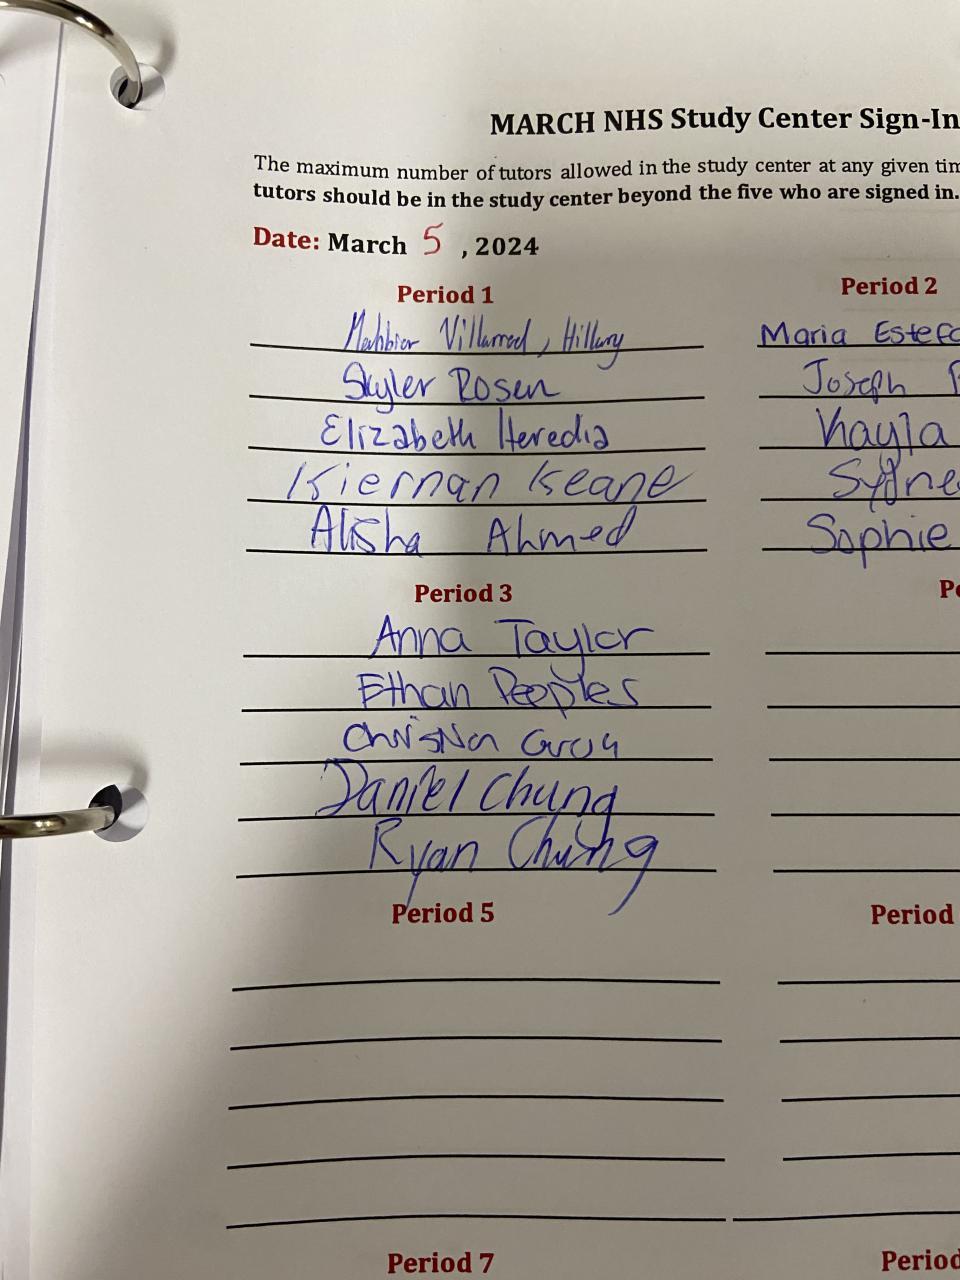 MARCH NHS Study Center Sign-In
The maximum number of tutors allowed in the study center at any given tim
tutors should be in the study center beyond the five who are signed in.
Date: March 5, 2024
Period 1
Hillary
Skyler Rosen
Elizabeth Heredia
Kiernan Keane
Alisha Ahmed
Period 2
Maria Estefa
Joseph
Kayla
Sydne
Sophie
Period 3
Anna Taylor
Ethan Peoples
Daniel Chung
Ryan Chung
Period 5
Period
Period 7
Period